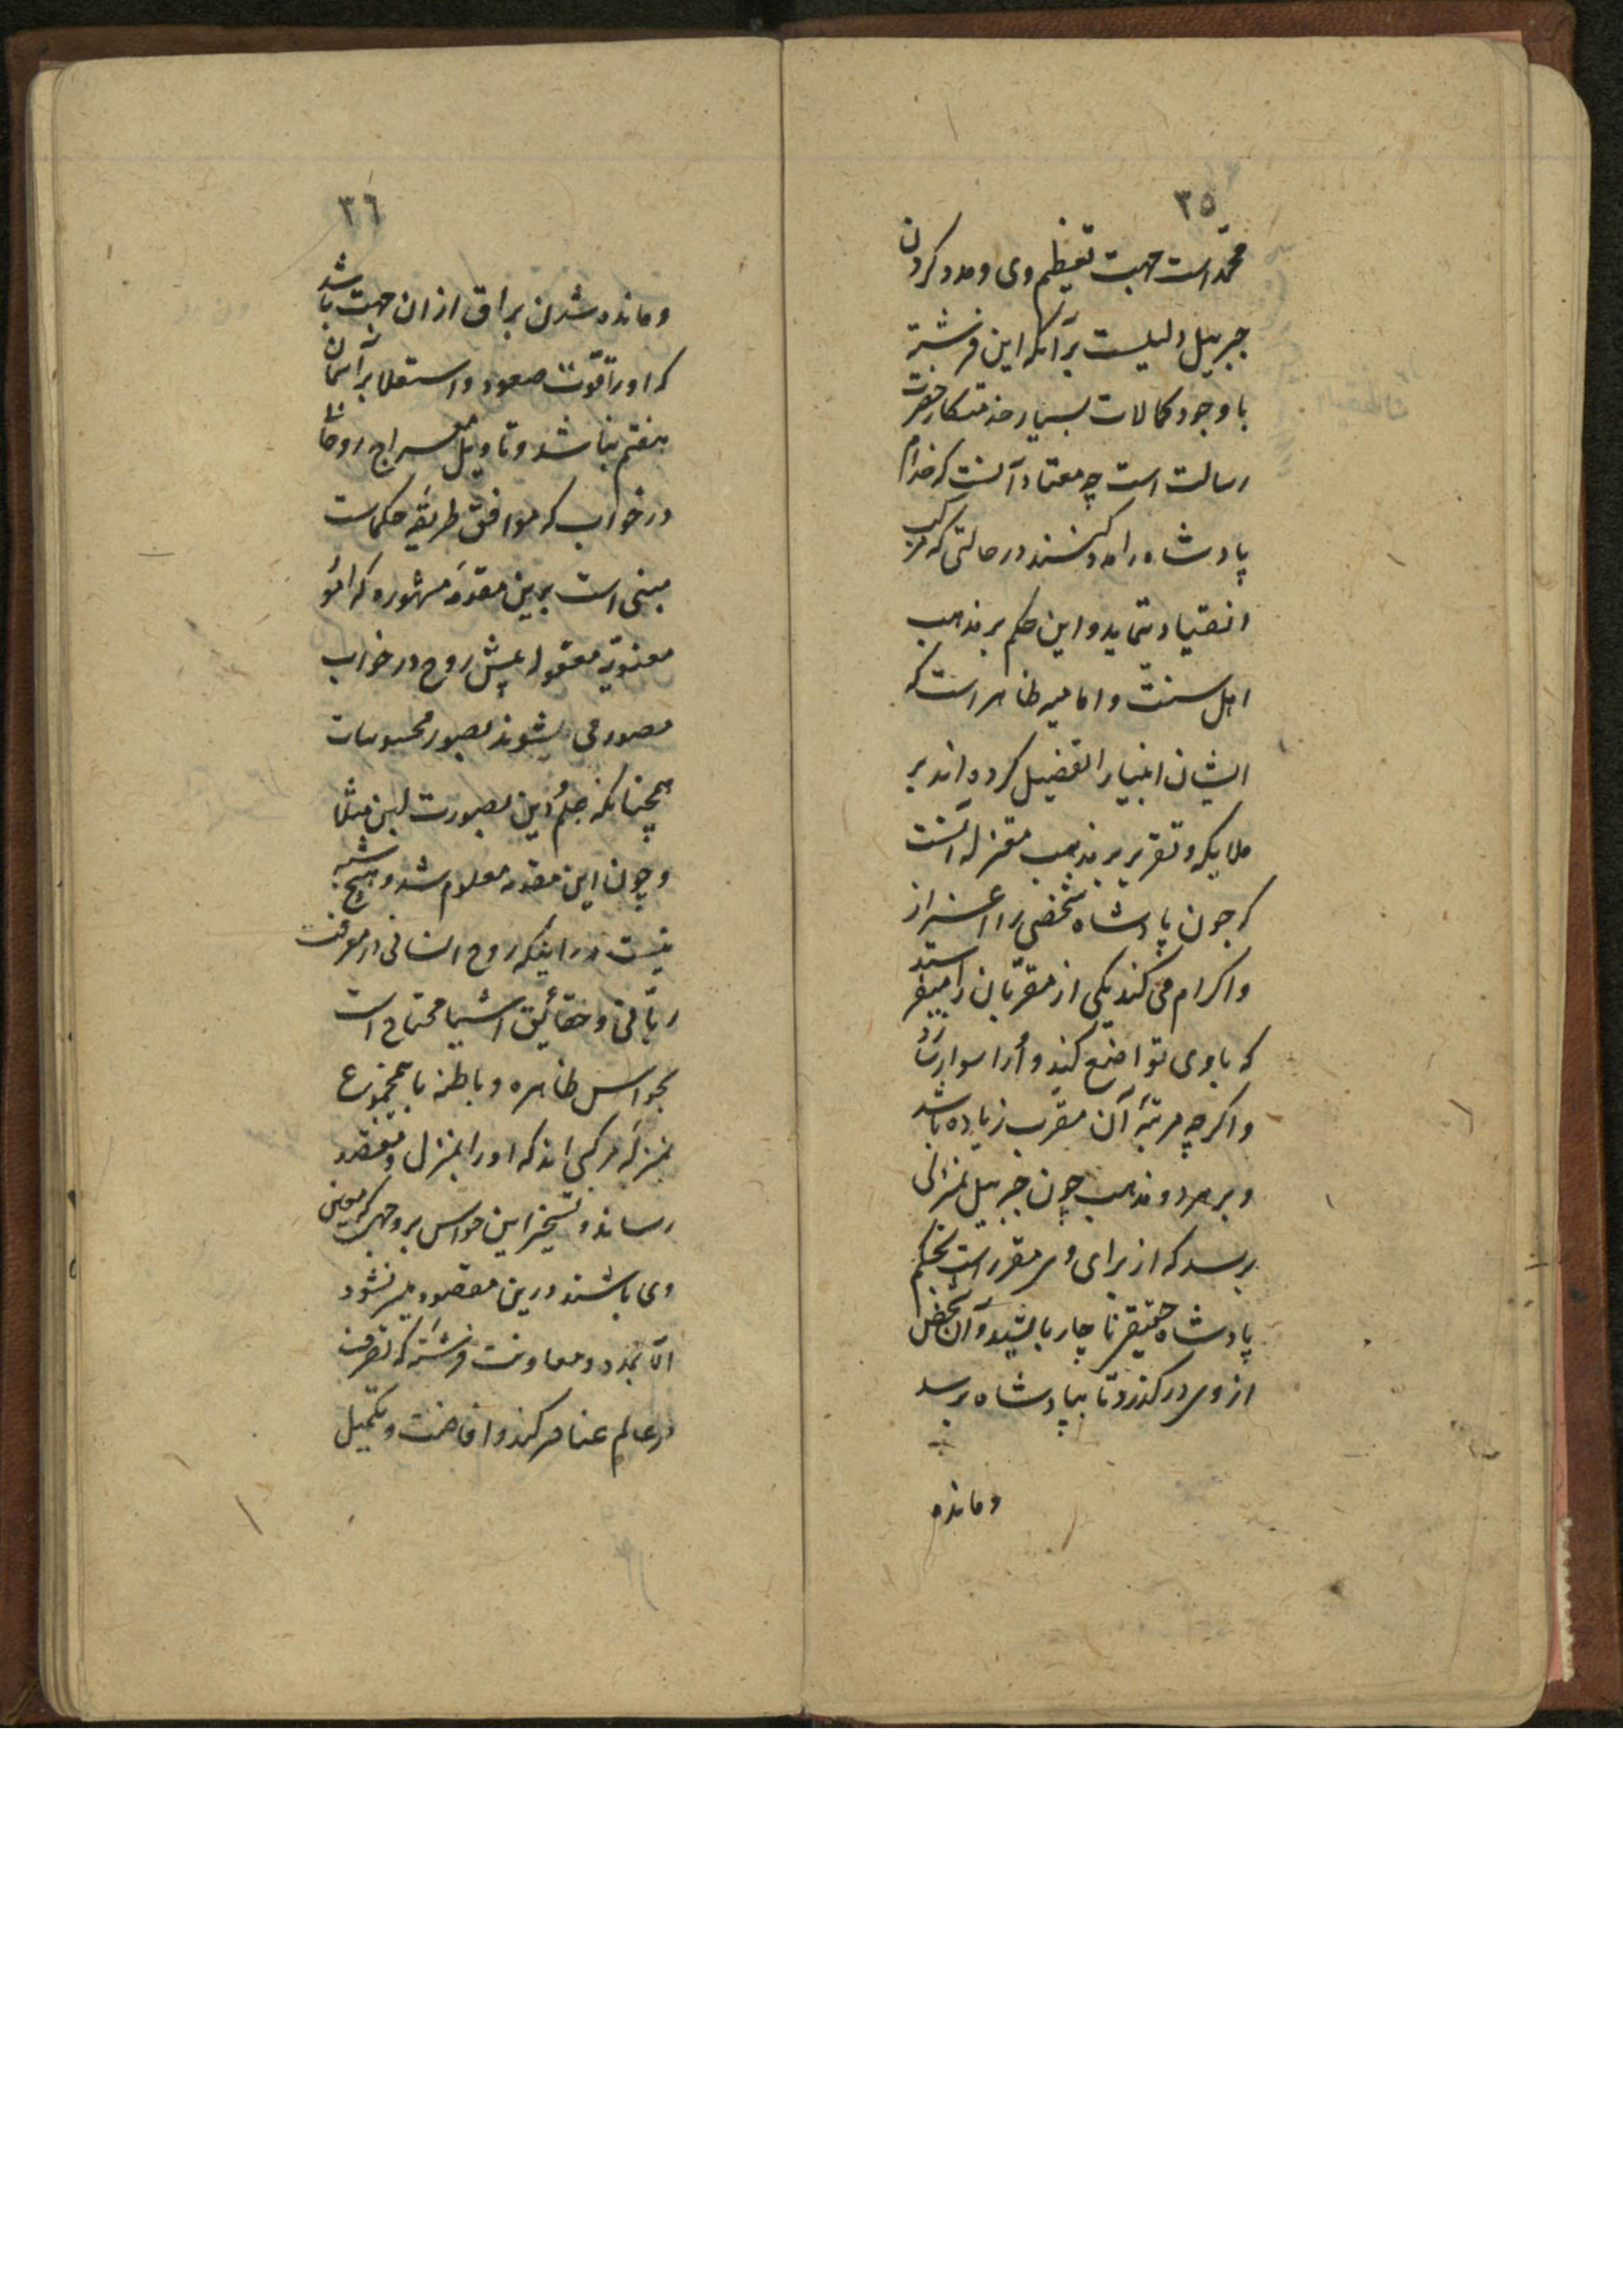 ۳۵
محمد است جهت تعظیم وی و مدد کردن
جبرییل دلیلست برآنکه این فرشته
با وجود کمالات بسیار خدمتکار حضرت
رسالت است چه معتاد آنست که خدام
پادشاه را مدد کنند در حالتی که مرکب
انقیاد ننماید و این حکم بر مذهب
اهل سنت و امامیه ظاهر است که
ایشان انبیا را تفضیل کرده اند بر
ملایکه و تقریر بر مذهب معتزله آنست
که چون پادشاه شخصی را اعزاز
و اکرام می کند یکی از مقربان را میفرستد
که با وی تواضع کند و اورا سوار
و اکرچه مرتبهٔ آن مقرب زیاده باشد
و بر هر دو مذهب چون جبرییل بمنزلی
برسد که از برای وی مقرر است بحکم
پادشاه حقیقی ناچار بایستد و آن شخص
از وی درکذرد تا بپادشاه برسد
و مانده
۳٦
و مانده شدن براق از ان جهت باشد
که اورا قوت صعود و استعلا بر آسمان
هفتم نباشد و تاویل معراج روحانی
در خواب که موافق طریقهٔ حکماست
مبنی است برین مقدمهٔ مشهوره که امور
معنویه معقوله پیش روح در خواب
مصور می شوند بصور محسوسات
همچنانکه علم دین بصورت لبن مثلا
و چون این مقدمه معلوم شد و هیچ شبه
نیست در اینکه روح انسانی در معرفت
ربانی و حقائق اشیا محتاج است
بحواس ظاهره و باطنه با مجموع
بمنزله مرکبی اند که اورا بمنزل و مقصد
رساند و تسخیر این حواس بروجهی که معین
وی باشند درین مقصود میسر نشود
الا بمدد و معاونت فرشتهٔ که تصرف
در عالم عناصر کند و افاضت و تکمیل